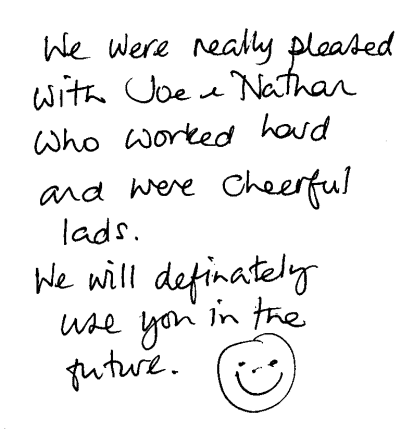 We were really pleased
with Joe & Nathan
who worked hard
and were cheerful
lads.
We will definately
use you in the
future.